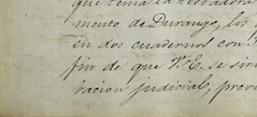 que tenia la testadora
mento de Durango, los
en dos cuadernos con
fin de que V.E. se sir
bacion judicial, prov